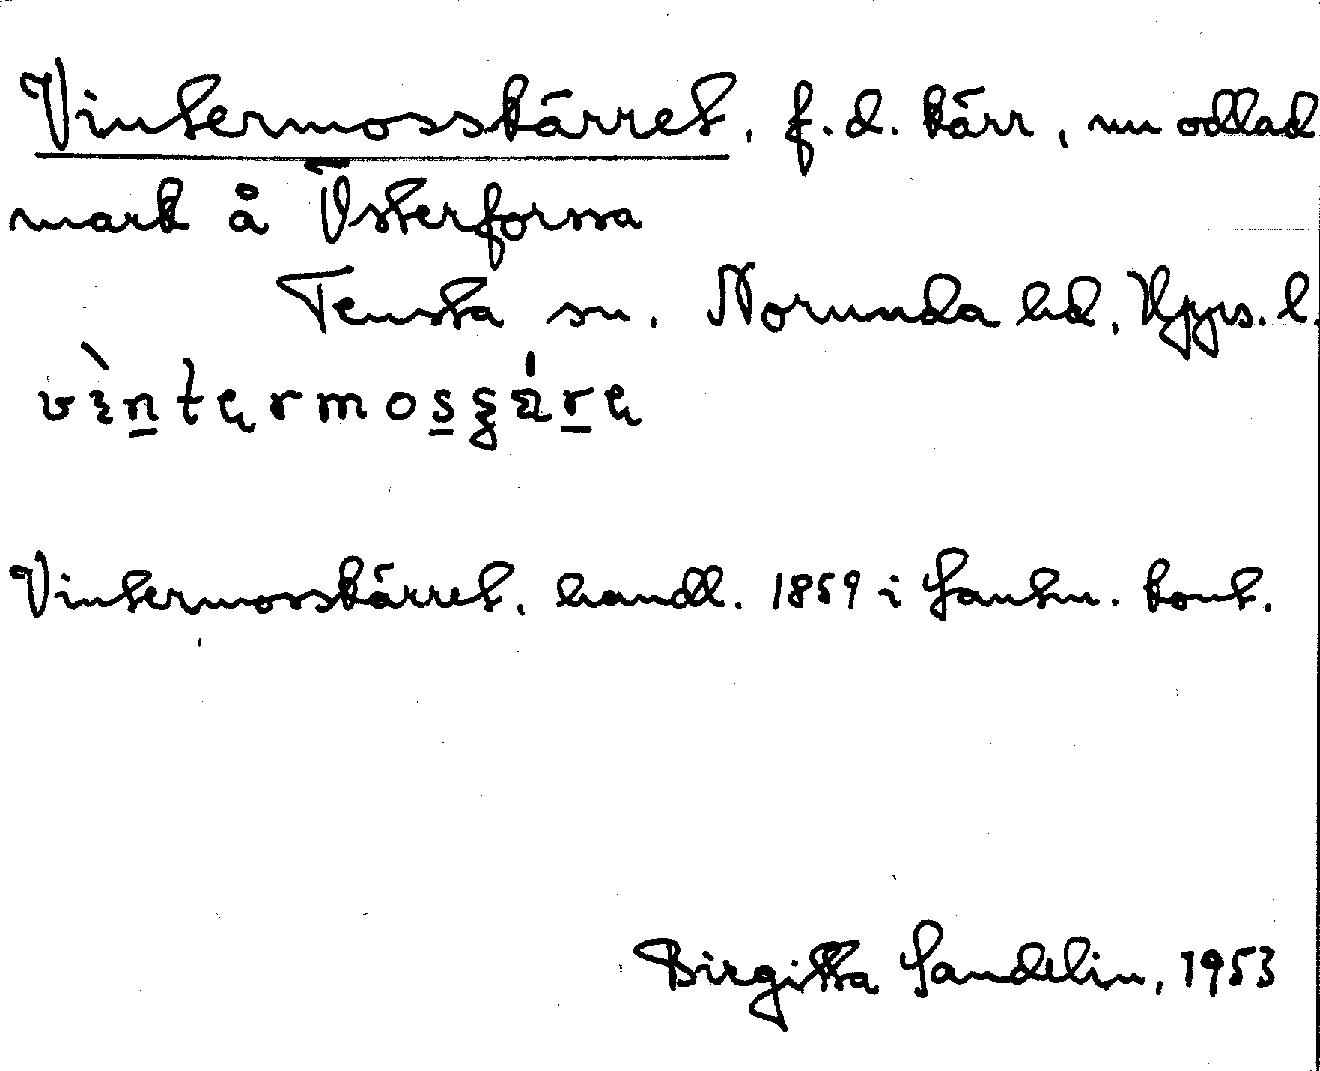 Vintermosskärret, f.d. kärr, nu odlad
mark å Österforssa
Tensta sn. Norunda hd, Upps. l.
Vintermosskärret, handl. 1859 i Lantm. kont.
Birgitta Sandelin, 1953